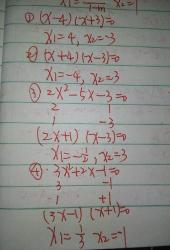 ① (x-4)(x+3)=0
x1=4, x2=-3
② (x+4)(x-3)=0
x1=-4, x2=3
③ 2x²-5x-3=0
2 1
1 -3
(2x+1)(x-3)=0
x1=-1/2, x2=3
④ 3x²+2x-1=0
3 -1
1 +1
(3x-1)(x+1)=0
x1=1/3 x2=-1